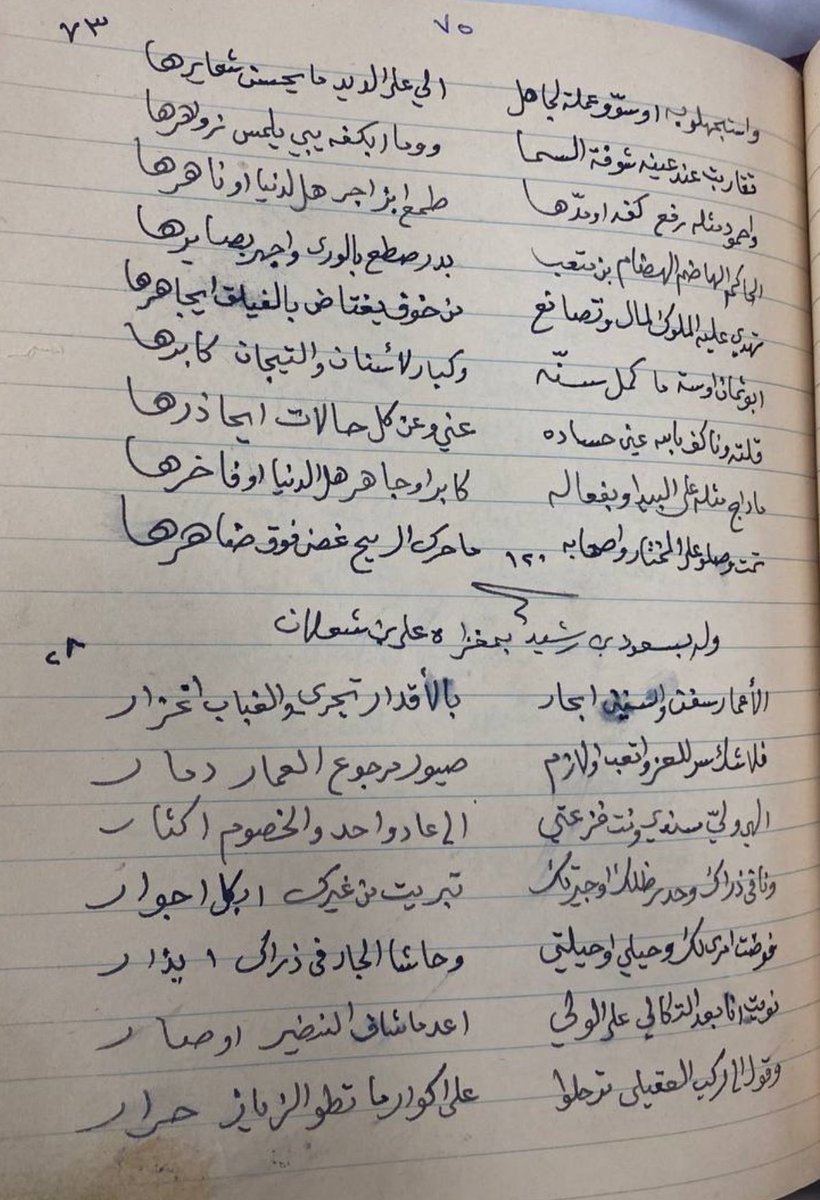 ٧٣ ٧٥
واستجهلو به اوسوّو عملة لجاهل الي على الديد ما يحسن شعايرها
تقاربت عند عينه شوفة السما ووما ابكفه يبي يلمس نزولهرها
واحمود مثله رفع كفه اومدّها طمع ابزاجر هل الدنيا اوناهرها
الحاكم الهاضم الهضام بن متعب بدر صطع بالورى واجهر بصايرها
تهدي عليه الملوك المال وتصانع من خوف يغتاض بالفيلق ايجاهرها
ابو ثمان اوستة ما كمل سنّه وكبار لاسنان والتيجان كابرها
قلته وناكف بابه عين حساده عني وعن كل حالات ايحاذرها
ماداج مثله على البيدا وبفعاله كابر اوجاهر هل الدنيا اوفاخرها
تمت وصلو على المختار واصحابه ما حرك الريح غصن فوق ضاهرها
١٢٠
وله بسعود بن رشيد بمغزاه على بن شعلان
٢٨
الأعمار سفن والسفين ابحار بالأقدار تجري والغباب اغزار
فلا شك سر للعز واتعب اولازم صيور مرجوع العمار دمار
الهي وليّ سندي ونت فزعتي الى عاد واحد والخصوم اكثار
ونا في ذراك وحدر ظلك اوجيرتك تبريت من غيرك ابكل اجوار
فوضت امري لك وحيلي اوحيلتي وحاشا الجار في ذراك ايذار
نويت انا بعد التكالي على الولي اعد ما شاف النضير اوصار
وقول الى ركب العقيلي ترحلوا على اكوار ما تطو الزيازي حرار